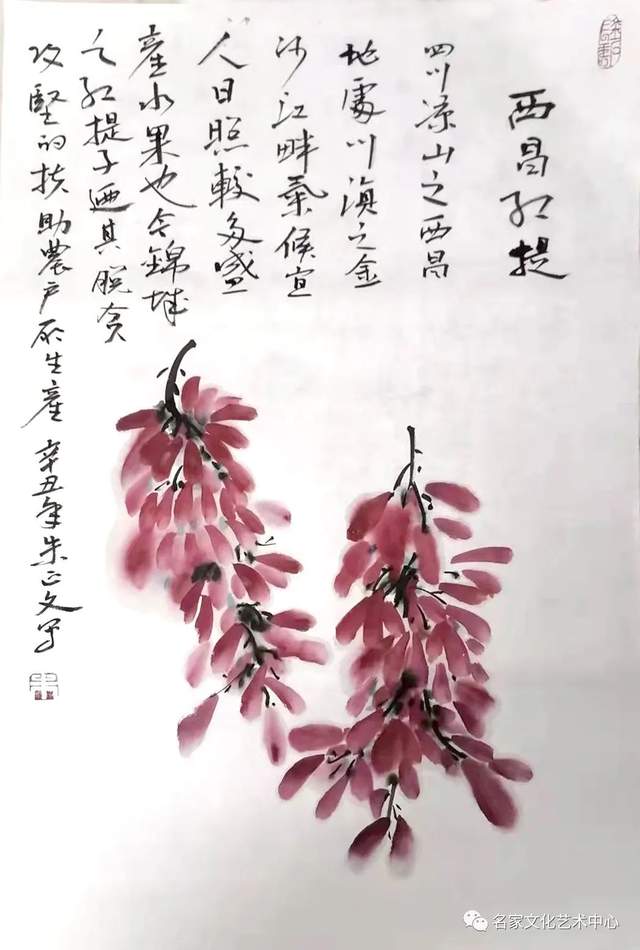 西昌红提
四川凉山之西昌
地處川滇之金
沙江畔氣候宜
人日照較多盛
產水果也今錦城
之红提子迺其脱贫
攻堅的扶助農户所生產 辛丑年朱正文写
名家文化艺术中心